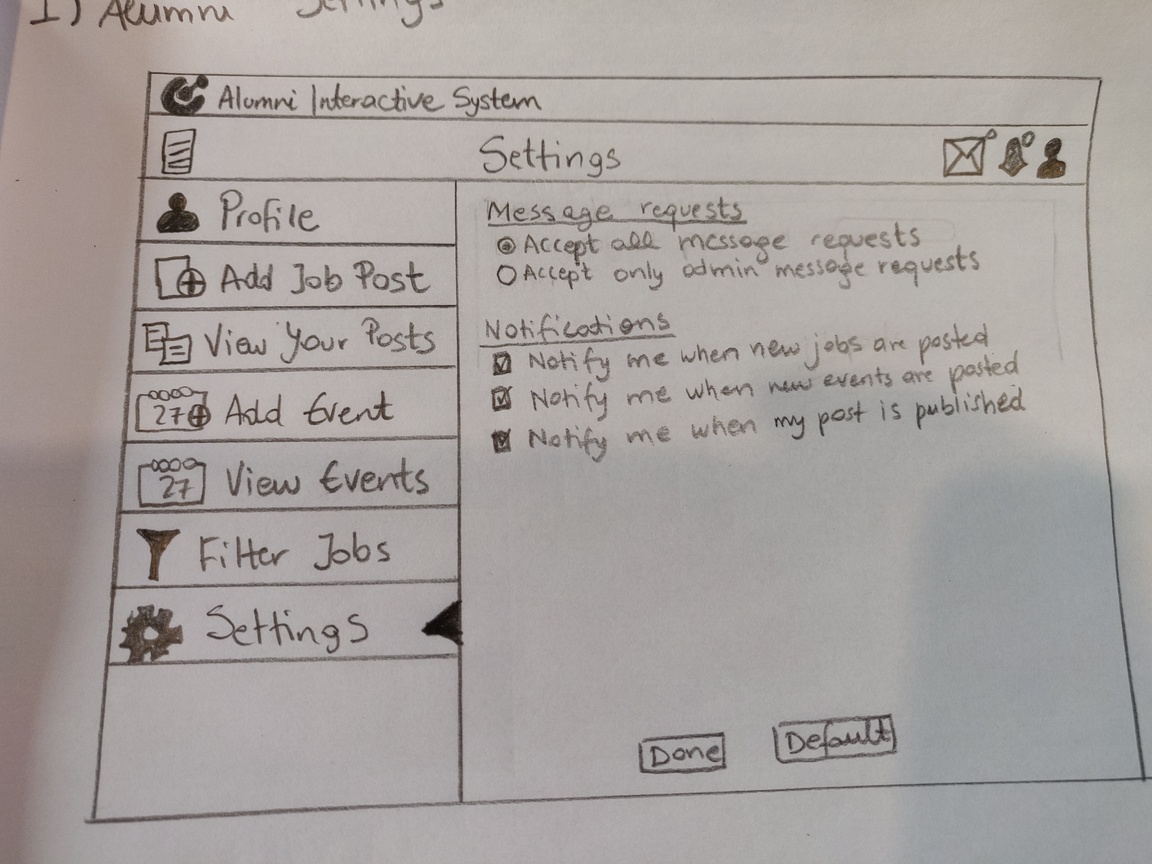 1) Alumni Settings
Alumni Interactive System
Settings
Profile
Add Job Post
View Your Posts
27 Add Event
27 View Events
Filter Jobs
Settings
Message requests
Accept all message requests
Accept only admin message requests
Notifications
Notify me when new jobs are posted
Notify me when new events are posted
Notify me when my post is published
Done
Default